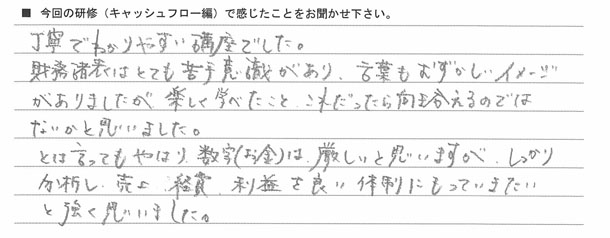 ■ 今回の研修（キャッシュフロー編）で感じたことをお聞かせ下さい。
丁寧でわかりやすい講座でした。
財務諸表はとても苦手意識があり、言葉もむずかしいイメージ
がありましたが、楽しく学べたこと、これだったら向き合えるのでは
ないかと思いました。
とは言ってもやはり、数字(お金)は、厳しいと思いますが、しっかり
分析し、売上、経費、利益を良い体制にもっていきたい
と強く思いました。